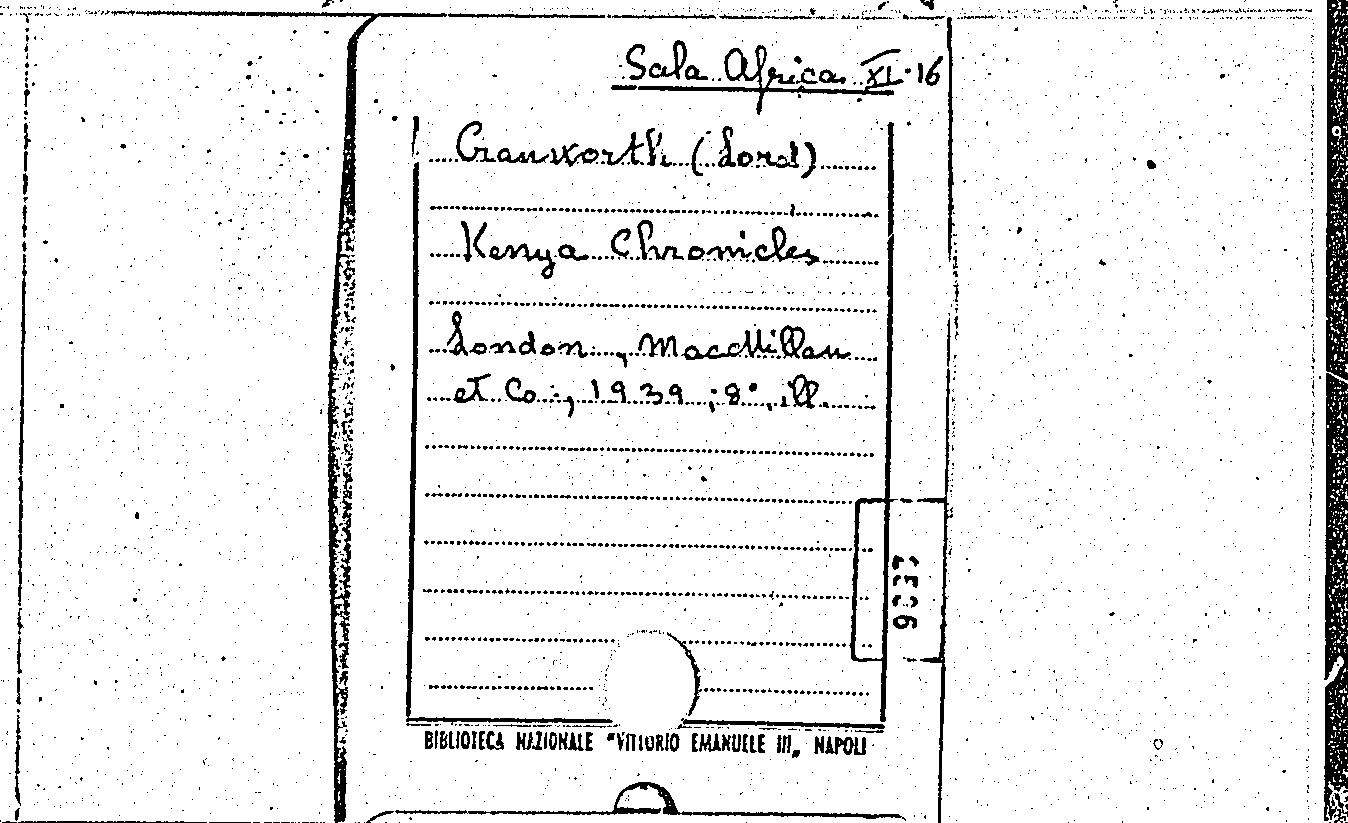 Sala Africa XI-16
Cranworth (Lord)
Kenya Chronicles
London, MacMillan
et Co., 1939; 8°, ill.
BIBLIOTECA NAZIONALE "VITTORIO EMANUELE III„ NAPOLI